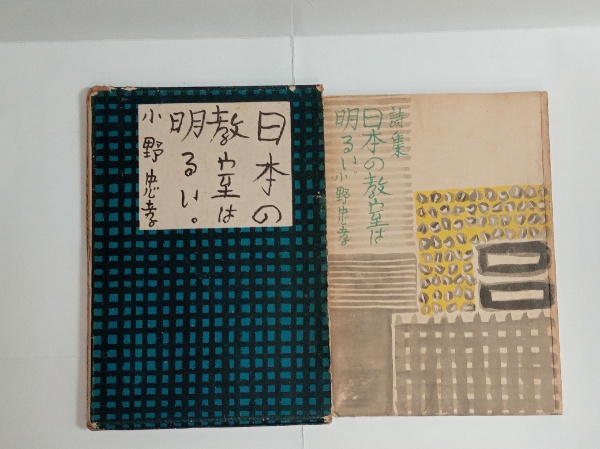 日本の
教室は
明るい。
小野忠孝
詩集
日本の教室は
明るい。小野忠孝